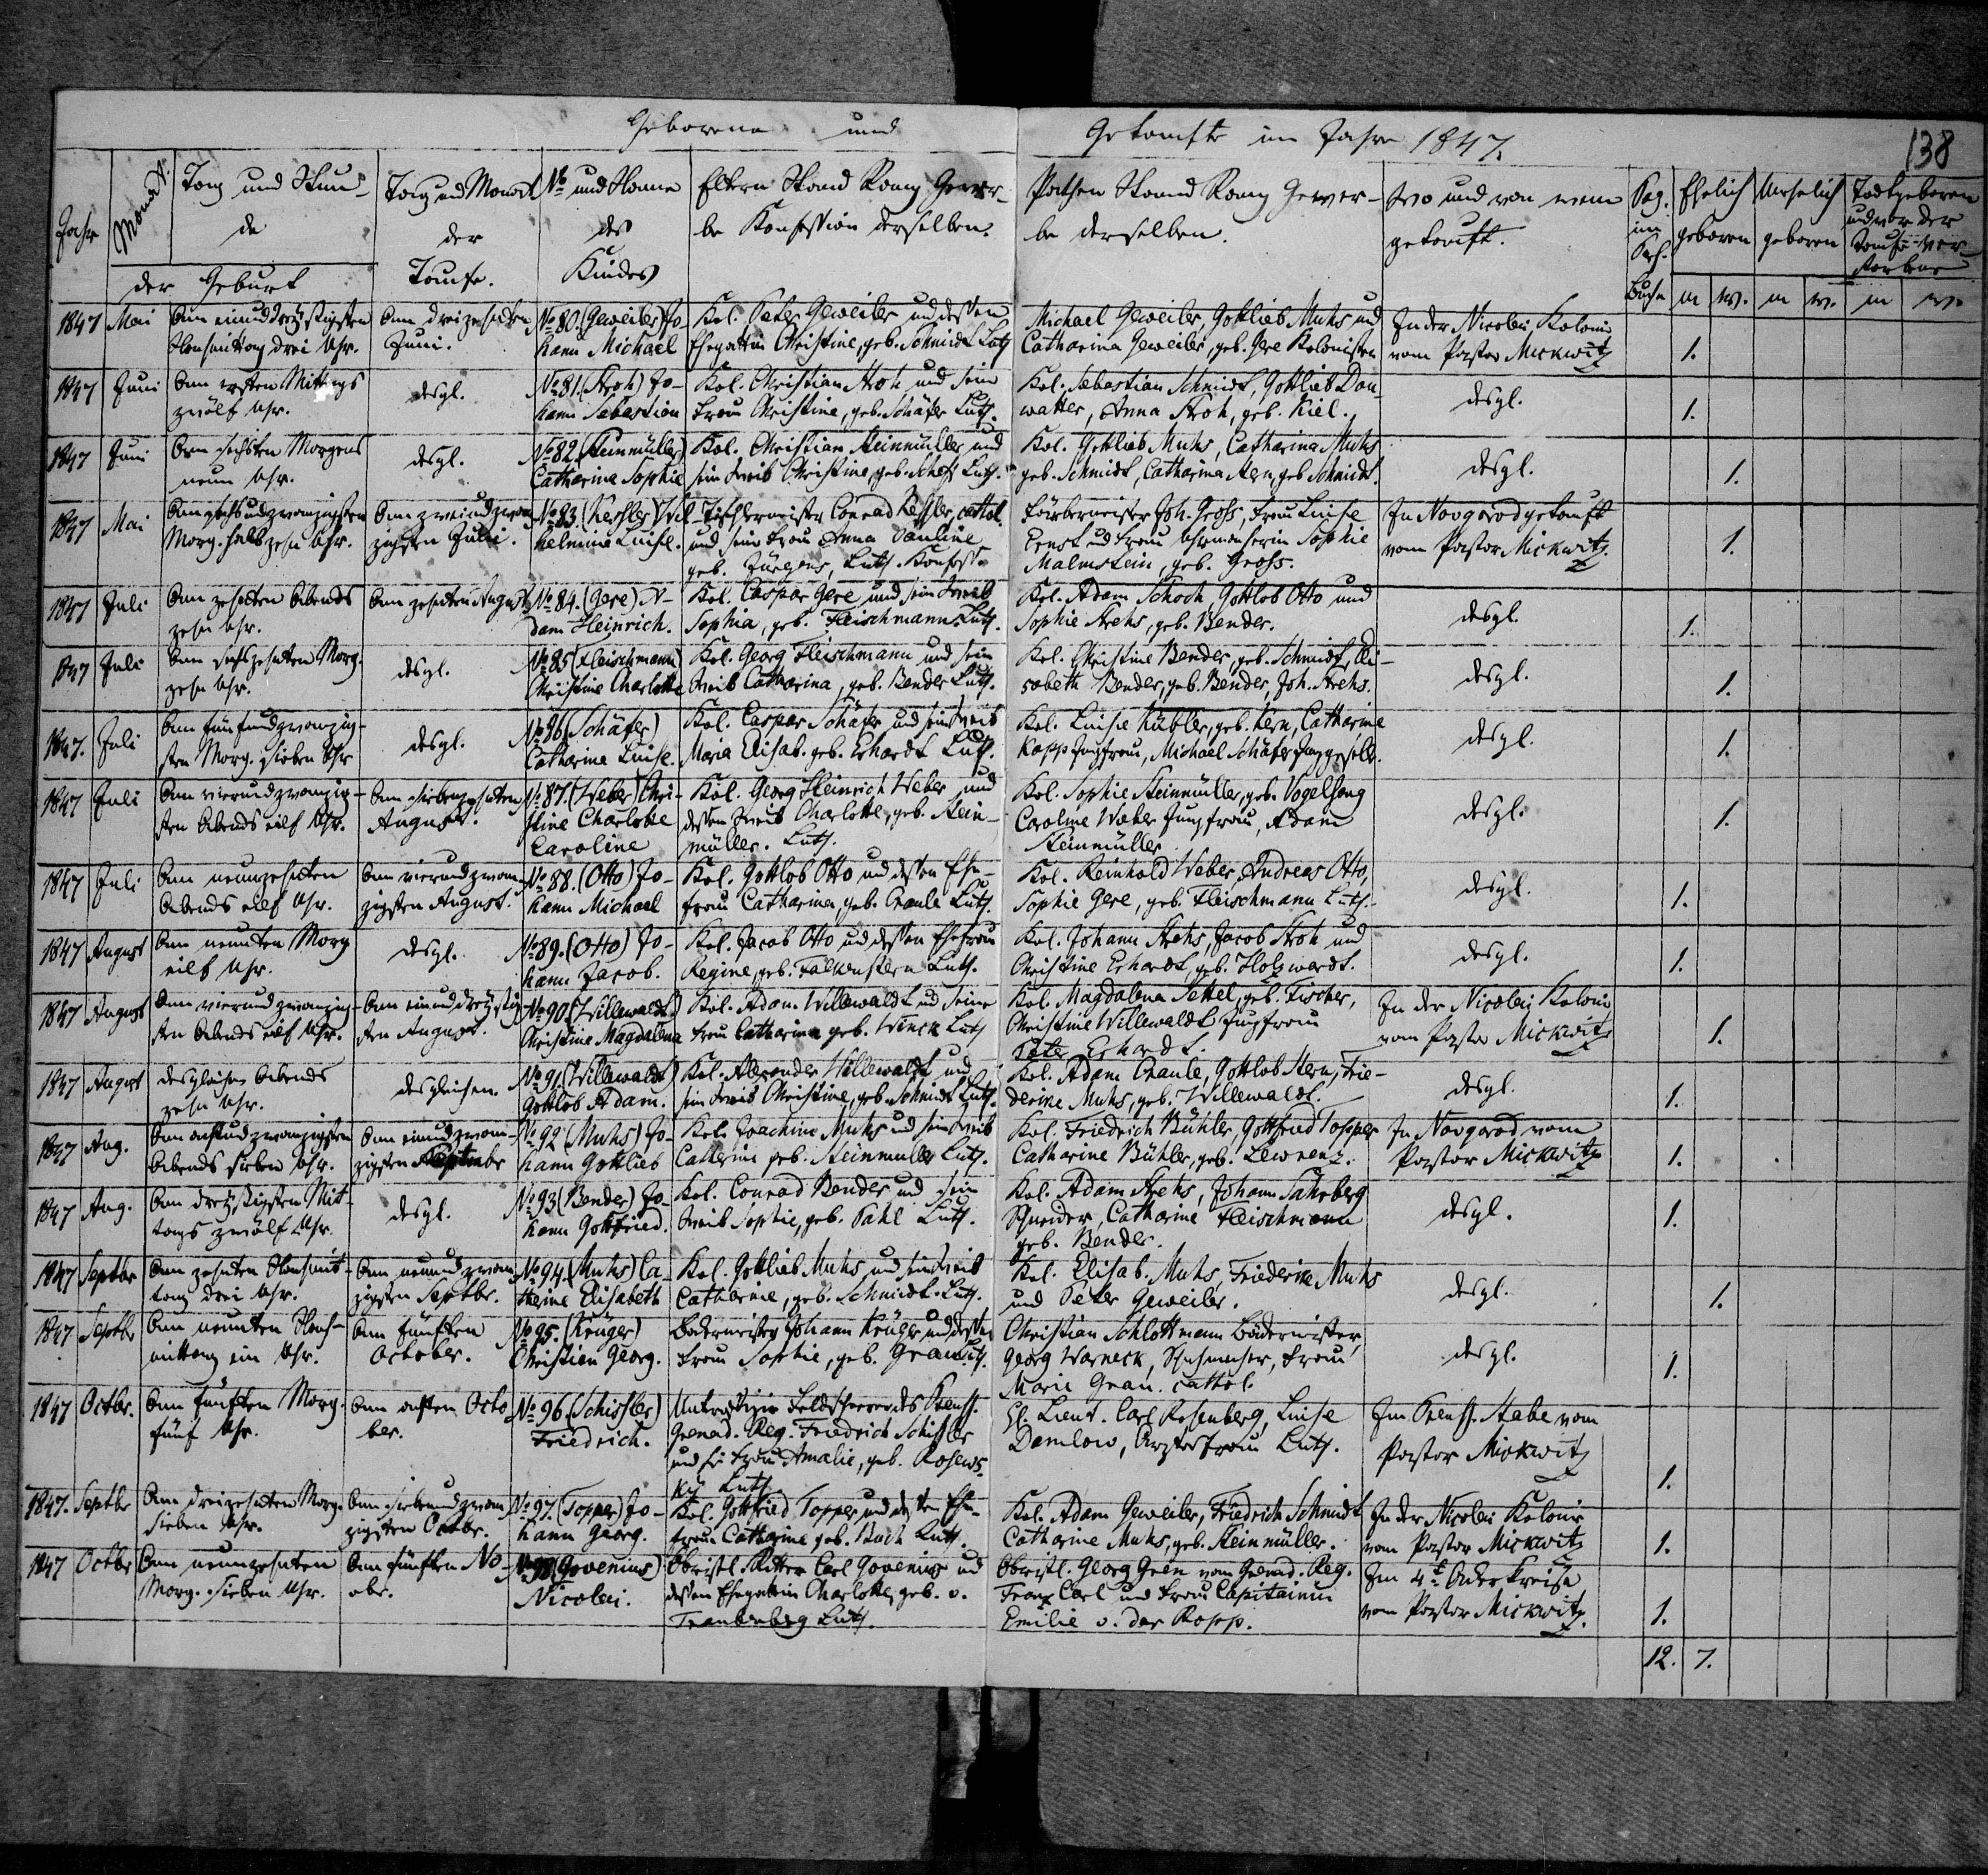 Geborene und Getaufte im Jahre 1847.
138
Jahr
Monat.
Tag und Stun-
de
der Geburt
Tag und Monat
der
Taufe.
No und Name
des
Kindes
Eltern Stand Rang Gewer-
be Konfession derselben.
Pathen Stand Rang Gewer-
be derselben.
Wo und von wem
getauft.
Pag.
im
Buche
Ehelich
geboren
Unehelich
geboren
Todtgeboren
und vor der
Taufe ver-
storben
m w. m w. m w.
1847 Mai
Am einunddreyßigsten
Nachmittag drei Uhr.
Am dreizehnten
Juni.
No 80. (Geweiler) Jo-
hann Michael
Kol. Peter Geweiler und dessen
Ehegattin Christine, geb. Schmidt Luth
Michael Geweiler, Gottlieb Muhs und
Catharina Geweiler, geb. Gere Kolonisten
In der Nicolai Kolonie
vom Pastor Mickwitz
1.
1847 Juni
Am ersten Mittags
zwölf Uhr.
desgl.
No 81. (Stroh) Jo-
hann Sebastian
Kol. Christian Stroh und seine
Frau Christine, geb. Schäfer Luth.
Kol. Sebastian Schmidt, Gottlieb Don-
watter, Anna Stroh, geb. Kiel.
desgl.
1.
1847 Juni
Am sechsten Morgens
neun Uhr.
desgl.
No 82. (Steinmüller)
Catharina Sophie
Kol. Christian Steinmüller und
sein Weib Christine, geb. Luth.
Kol. Gottlieb Muhs, Catharina Muhs
geb. Schmidt, Catharina Stern, geb Schmidt.
desgl.
1.
1847 Mai
Am sechsundzwanzigsten
Morg. halb zehn Uhr.
Am zweiundzwan-
zigsten Julii.
No 83. (Kessler) Wil-
helmina Luise.
Tischlermeister Conrad Kessler, cathol.
und seine Frau Anna Pauline
geb. Jürgens, Luth. Konfess.
Färbermeister Joh. Gross, Frau Luise
Ernst und Frau Sophie
Malmstein, geb. Gross.
In Novgorod getauft
vom Pastor Mickwitz.
1.
1847 Juli
Am zehnten Abends
zehn Uhr.
Am zehnten August
No 84. (Gere) A-
dam Heinrich.
Kol. Caspar Gere und sein Weib
Sophia, geb. Fleischmann. Luth.
Kol. Adam Schoch, Gottlob Otto und
Sophie Strehs, geb. Bender.
desgl.
1.
1847 Juli
Am sechszehnten Morg.
zehn Uhr.
desgl.
No 85 (Fleischmann)
Christine Charlotte
Kol. Georg Fleischmann und sein
Weib Catharina, geb. Bender Luth.
Kol. Christine Bender, geb. Schmidt, Eli-
sabeth Bender, geb. Bender, Joh. Strehs.
desgl.
1.
1847. Juli
Am fünfundzwanzig-
sten Morg. sieben Uhr
desgl.
No 86 (Schäfer)
Catharine Luise.
Kol. Caspar Schäfer und sein Weib
Maria Elisab. geb. Erhardt Luth.
Kol. Luise Kübler, geb. Kern, Catharine
Kapp Jungfrau, Michael Schäfer Junggesell.
desgl.
1.
1847 Juli
Am vierundzwanzig-
sten Abends eilf Uhr.
Am siebenzehnten
August.
No 87. (Weber) Chri-
stine Charlotte
Caroline
Kol. Georg Heinrich Weber und
dessen Weib Charlotte, geb. Stein-
müller. Luth.
Kol. Sophie Steinmüller, geb. Vogelsang
Caroline Weber Jungfrau, Adam
Steinmüller
desgl.
1.
1847 Juli
Am neunzehnten
Abends eilf Uhr.
Am vierundzwan-
zigsten August.
No 88. (Otto) Jo-
hann Michael
Kol. Gottlob Otto und dessen Ehe-
frau Catharina, geb. Craule Luth.
Kol. Reinhold Weber, Andreas Otto,
Sophie Gere, geb. Fleischmann Luth.
desgl.
1.
1847 August
Am neunten Morg
eilf Uhr.
desgl.
No 89. (Otto) Jo-
hann Jacob.
Kol. Jacob Otto und dessen Ehefrau
Regine, geb. Falkenstern Luth.
Kol. Johann Strehs, Jacob Stroh und
Christine Erhardt, geb. Holzwardt.
desgl.
1.
1847 August
Am vierundzwanzig-
sten Abends eilf Uhr.
Am einunddreyßig-
sten August.
No 90. (Willewaldt)
Christine Magdalena
Kol. Adam Willewaldt und seine
Frau Catharina geb. Winck Luth
Kol. Magdalena Settel, geb. Fischer,
Christine Willewaldt Jungfrau
Peter Erhardt.
In der Nicolai Kolonie
vom Pastor Mickwitz
1.
1847 August
desgleichen Abends
zehn Uhr.
desgleichen.
No 91. (Willewaldt)
Gottlob Adam.
Kol. Alexander Willewaldt und
sein Weib Christine, geb. Schmidt Luth.
Kol. Adam Craule, Gottlob Stern, Frie-
derine Muhs, geb. Willewaldt.
desgl.
1.
1847 Aug.
Am achtundzwanzigsten
Abends sieben Uhr.
Am einundzwan-
zigsten Septembr
No 92 (Muhs) Jo-
hann Gottlieb
Kol. Joachim Muhs und sein Weib
Catherine geb. Steinmuller Luth.
Kol. Friedrich Bühler, Gottfried Topper
Catharine Bühler, geb. Lewrenz.
In Novgorod vom
Pastor Mickwitz
1.
1847 Aug.
Am dreyßigsten Mit-
tags zwölf Uhr.
desgl.
No 93 (Bender) Jo-
hann Gottfried.
Kol. Conrad Bender und sein
Weib Sophie, geb. Pahl Luth.
Kol. Adam Strehs, Johann Sahrberg
Schneider, Catharine Fleischmann
geb. Bender.
desgl.
1.
1847 Septbr
Am zehnten Nachmit-
tag drei Uhr.
Am neunundzwan
zigsten Septbr.
No 94. (Muhs) Ca-
therine Elisabeth
Kol. Gottlieb Muhs und sein Weib
Catharine, geb. Schmidt. Luth.
Kol. Elisab. Muhs, Friederike Muhs
und Peter Geweiler.
desgl.
1.
1847 Septbr
Am neunten Nach-
mittag ein Uhr.
Am fünften
October.
No 95. (Krüger)
Christian Georg.
Johann Krüger und dessen
Frau Sophie, geb. Grau Luth.
Christian Schlottmann
Georg Warneck, Schuhmacher, Frau
Marie Grau. cathol.
desgl.
1.
1847 Octbr.
Am fünften Morg.
fünf Uhr.
Am achten Octo
ber.
No 96. (Schissler)
Friedrich.
Feldscheerer des Preuss.
Grenad. Reg. Friedrich Schissler
und se Frau Amalie, geb. Rosews-
ky Luth.
Lieut. Carl Rosenberg, Luise
Damlow, Arztes Frau Luth.
Im Preuss. Stabe vom
Pastor Mickwitz
1.
1847. Septbr
Am dreizehnten Morg.
sieben Uhr.
Am siebenundzwan
zigsten Octbr.
No 97. (Topper) Jo-
hann Georg.
Kol. Gottfried Topper und dessen Ehe-
frau Catharine geb. Koch Luth.
Kol. Adam Geweiler, Friedrich Schmidt
Catharine Muhs, geb. Steinmüller.
In der Nicolai Kolonie
vom Pastor Mickwitz
1.
1847 Octbr
Am neunzehnten
Morg. sieben Uhr.
Am fünften No-
vbr.
No 98 (Govenius)
Nicolai.
Obristl. Ritter Carl Govenius und
dessen Ehegattin Charlotte, geb. v.
Traubenberg Luth.
Obristl. Georg Green vom Grenad. Reg.
Franz Carl und Frau Capitainin
Emilie v. der Ropp.
Im 4t Ackerkreise
vom Pastor Mickwitz.
1.
12. 7.